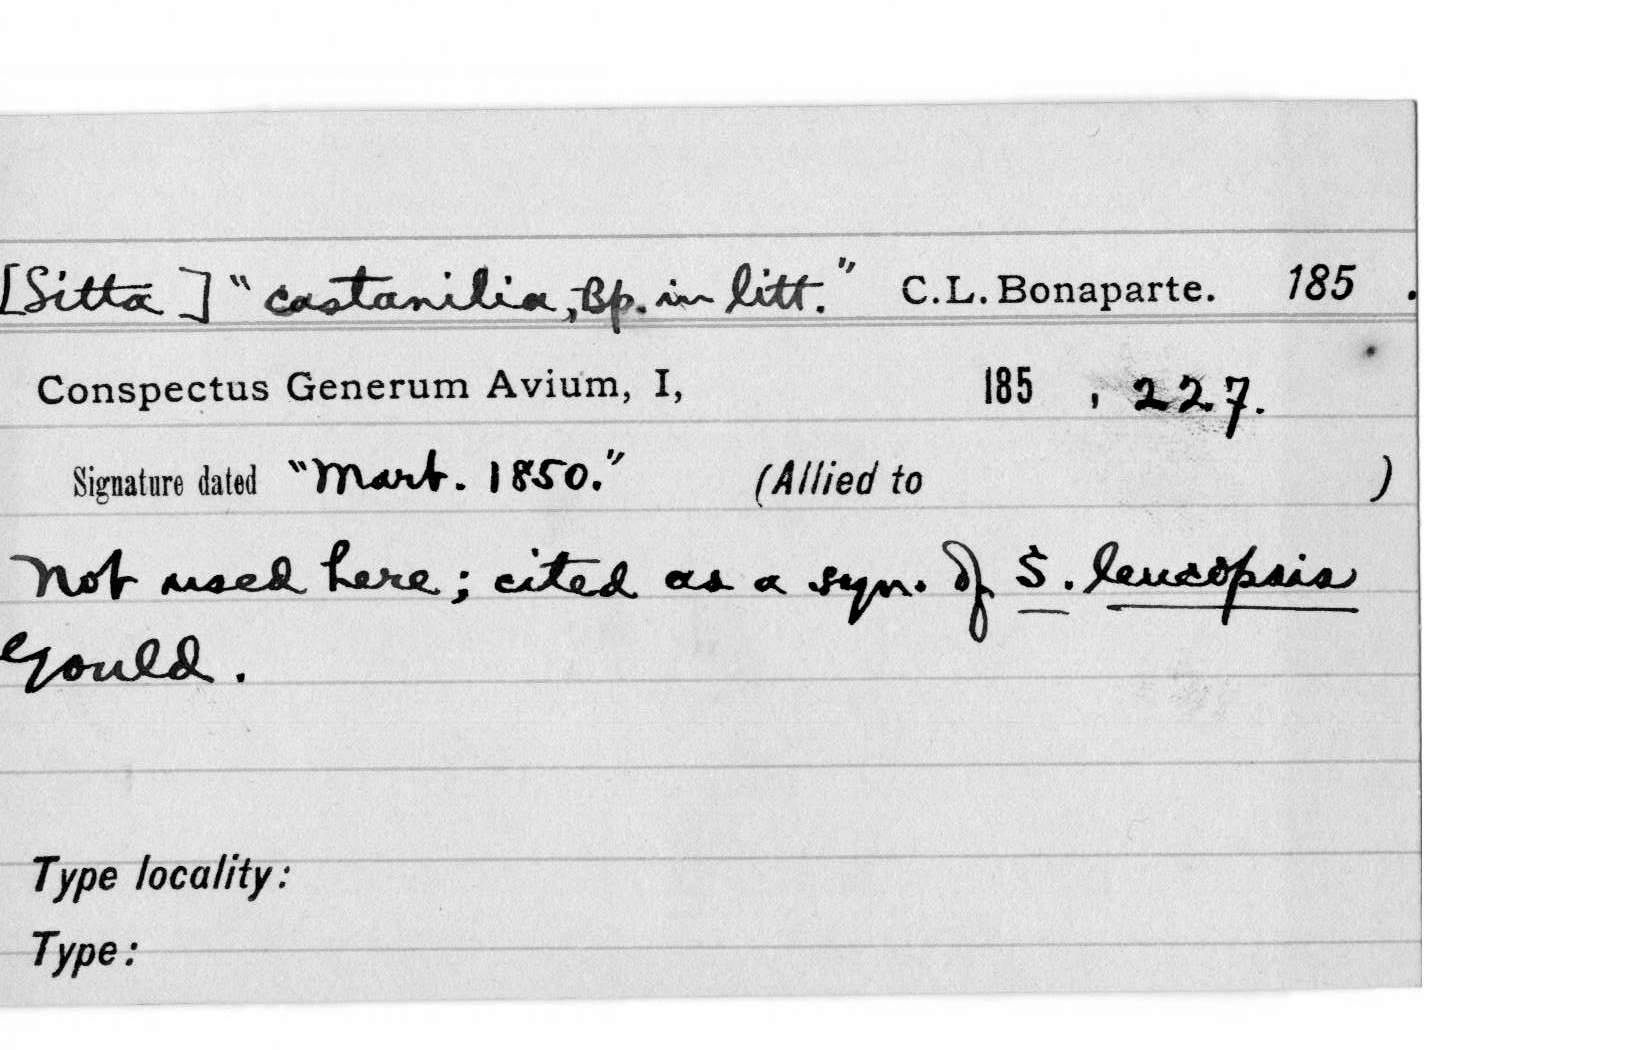 [Sitta] "castanilia, Bp. in litt." C.L. Bonaparte. 185 .
Conspectus Generum Avium, I, 185 , 227.
Signature dated "Mart. 1850." (Allied to )
Not used here; cited as a syn. of S. leucopsis
Gould.
Type locality:
Type: